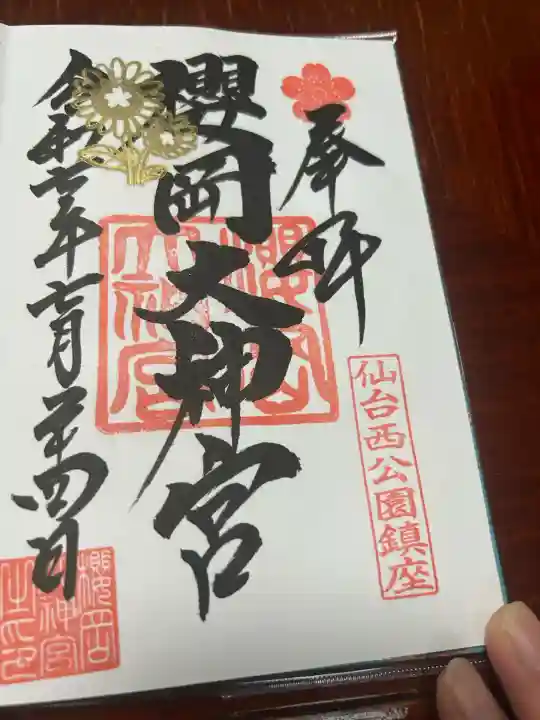 奉拝
仙台西公園鎮座
櫻岡大神宮
櫻岡大神宮
令和七年七月廿四日
櫻岡
神宮
之印